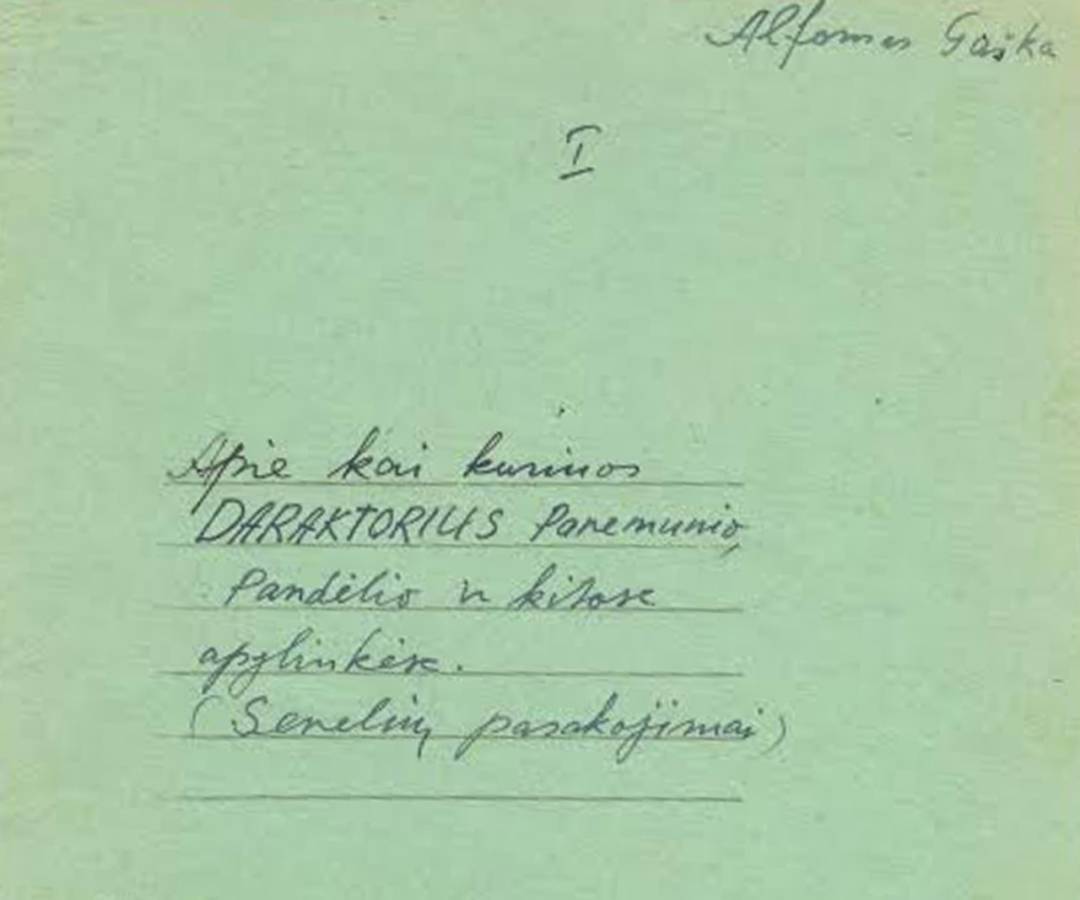 Alfonsas Gaška
I
Apie kai kuriuos
DARAKTORIUS Panemunio,
Pandėlio ir kitose
apylinkėse.
(Senelių pasakojimai)